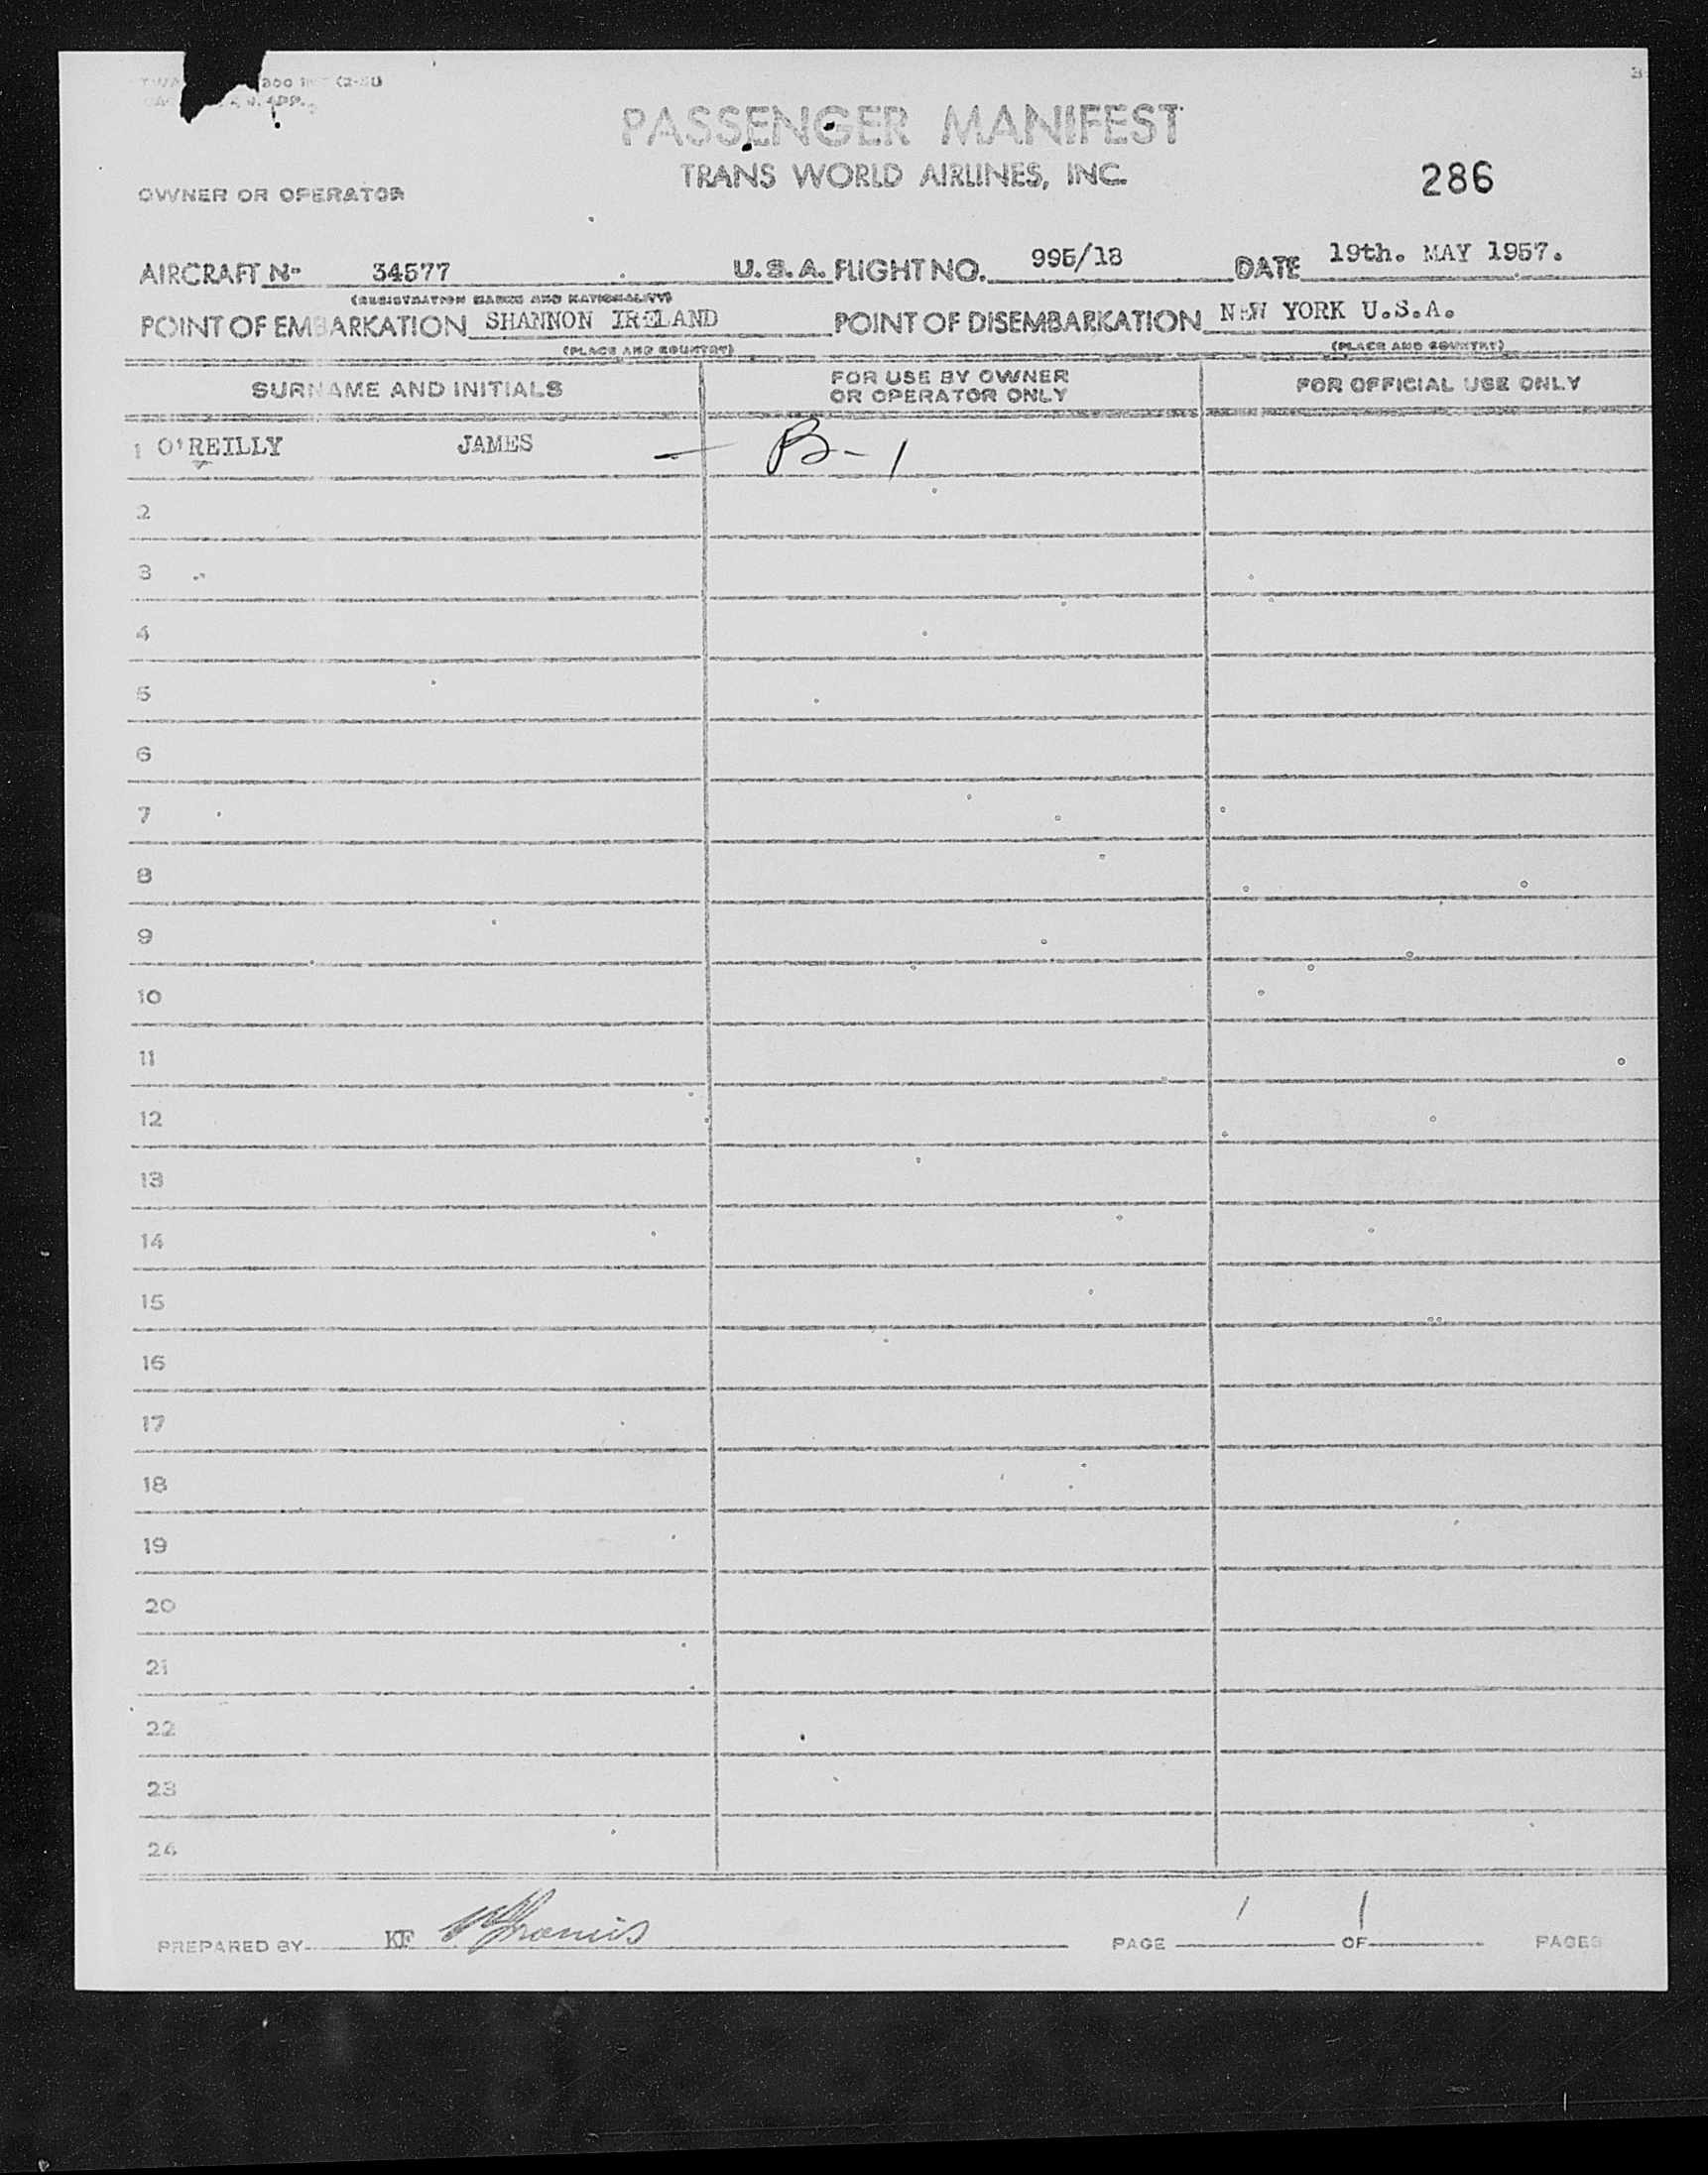 PASSENGER MANIFEST
TRANS WORLD AIRLINES, INC.
286
OWNER OR OPERATOR
AIRCRAFT No 34577 U.S.A. FLIGHT NO. 995/18 DATE 19th. MAY 1957.
(REGISTRATION MARKS AND NATIONALITY)
POINT OF EMBARKATION SHANNON IRELAND POINT OF DISEMBARKATION NEW YORK U.S.A.
(PLACE AND COUNTRY) (PLACE AND COUNTRY)
SURNAME AND INITIALS FOR USE BY OWNER OR OPERATOR ONLY FOR OFFICIAL USE ONLY
1 O'REILLY JAMES — B-1
2
3
4
5
6
7
8
9
10
11
12
13
14
15
16
17
18
19
20
21
22
23
24
PREPARED BY KF Francis PAGE 1 OF 1 PAGES